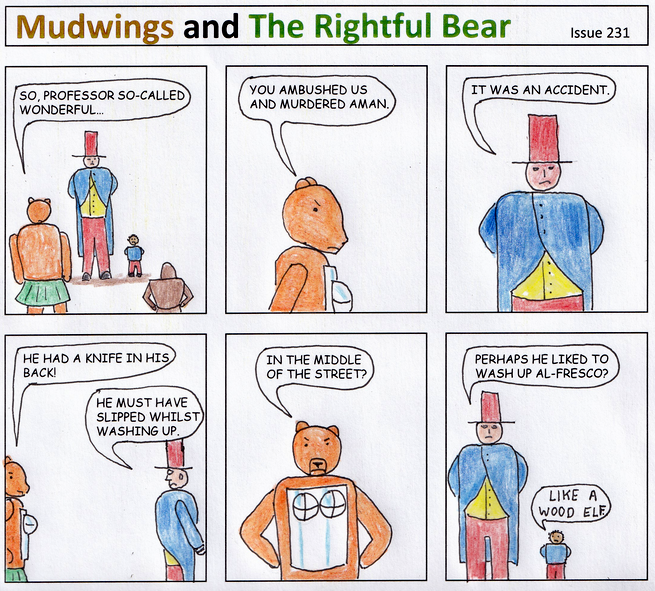 Mudwings and The Rightful Bear
Issue 231
SO, PROFESSOR SO-CALLED
WONDERFUL...
YOU AMBUSHED US
AND MURDERED AMAN.
IT WAS AN ACCIDENT.
HE HAD A KNIFE IN HIS
BACK!
HE MUST HAVE
SLIPPED WHILST
WASHING UP.
IN THE MIDDLE
OF THE STREET?
PERHAPS HE LIKED TO
WASH UP AL-FRESCO?
LIKE A
WOOD ELF.